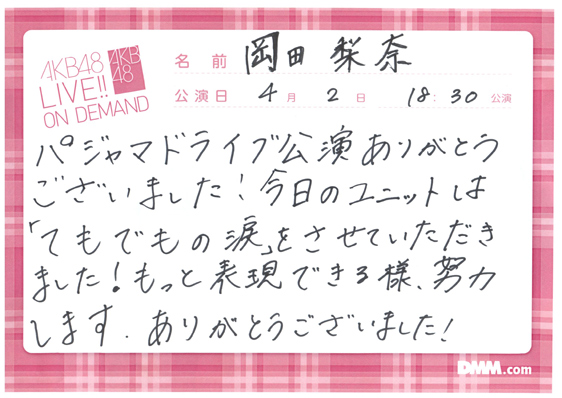 AKB48
LIVE!!
ON DEMAND
AKB
48
名前 岡田 梨奈
公演日 4月 2日 18:30 公演
パジャマドライブ公演ありがとう
ございました!今日のユニットは
「てもでもの涙」をさせていただき
ました!もっと表現できる様、努力
します。ありがとうございました!
DMM.com